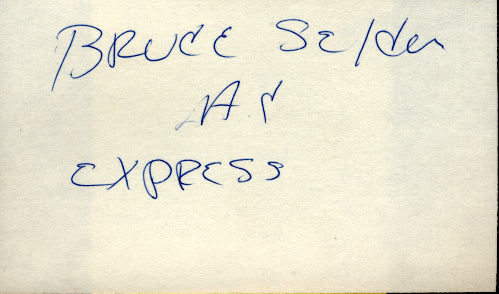 BRUCE Seldon
A.C
EXPRESS